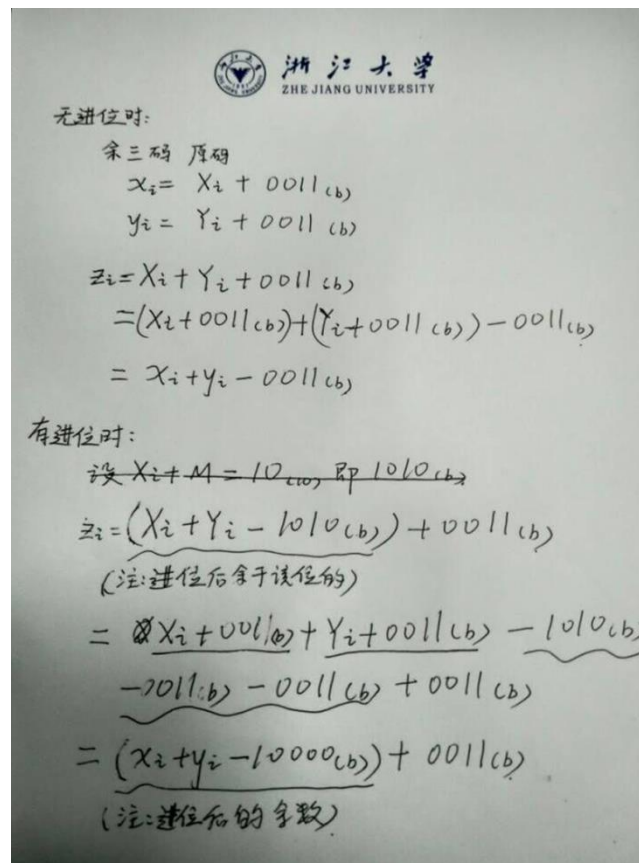 浙江大学
ZHE JIANG UNIVERSITY
无进位时:
余三码 原码
xᵢ = Xᵢ + 0011(b)
yᵢ = Yᵢ + 0011(b)
zᵢ = Xᵢ + Yᵢ + 0011(b)
= (Xᵢ + 0011(b)) + (Yᵢ + 0011(b)) - 0011(b)
= xᵢ + yᵢ - 0011(b)
有进位时:
设 Xᵢ + M = 10(10) 即 1010(b)
zᵢ = (Xᵢ + Yᵢ - 1010(b)) + 0011(b)
(注:进位后余于该位的)
= Xᵢ + 0011(b) + Yᵢ + 0011(b) - 1010(b)
- 0011(b) - 0011(b) + 0011(b)
= (xᵢ + yᵢ - 10000(b)) + 0011(b)
(注:进位后的余数)